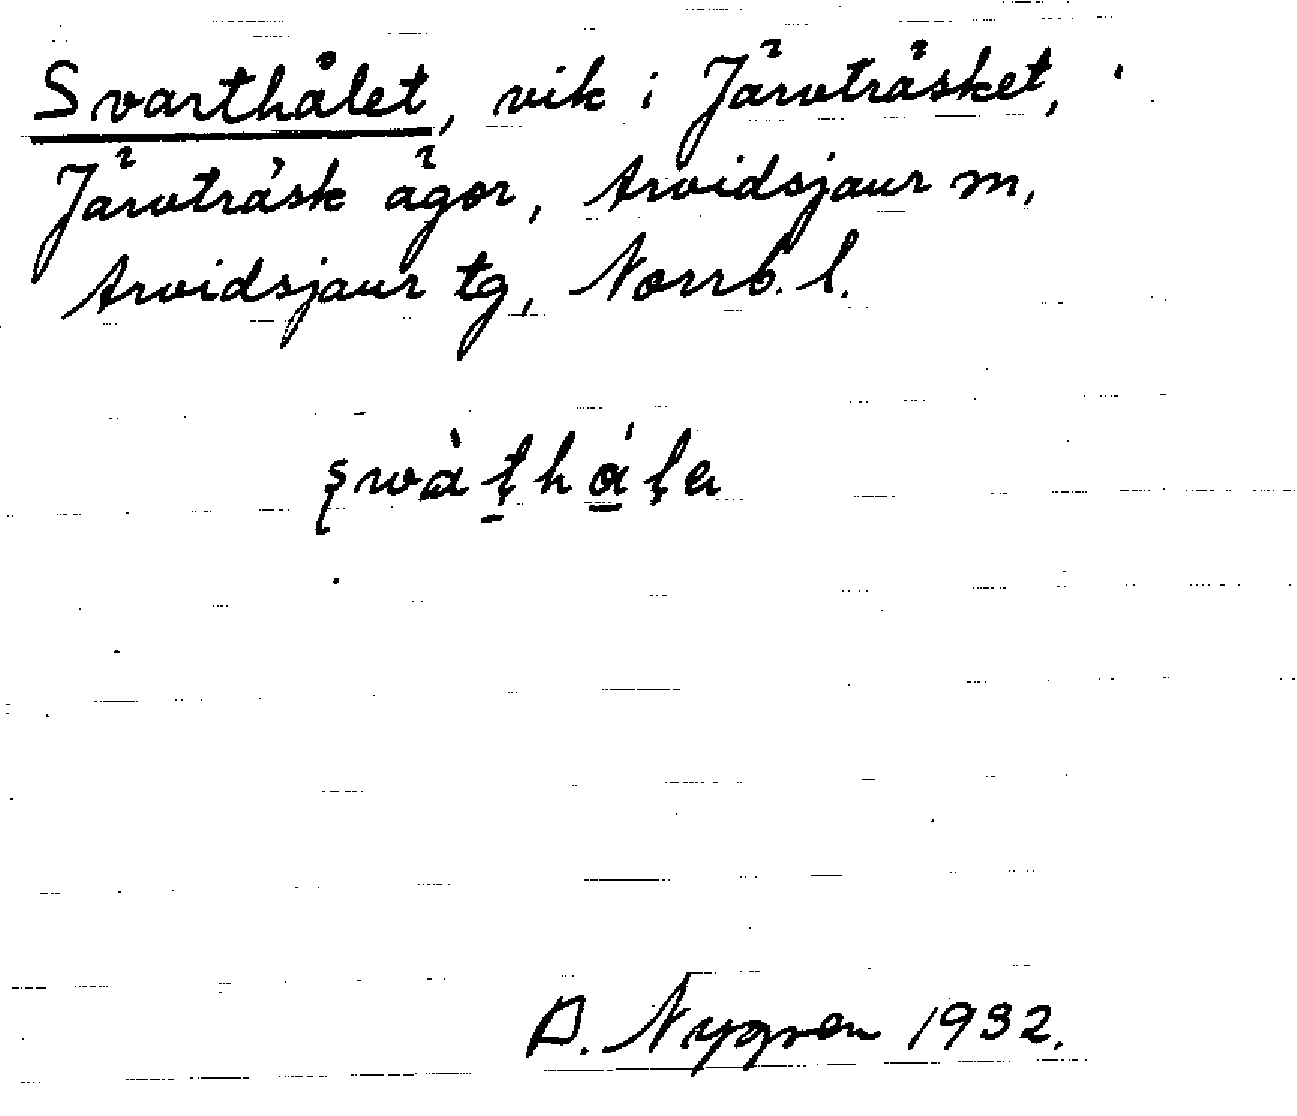 Svarthålet, vik i Järvträsket,
Järvträsk ägor, Arvidsjaur m,
Arvidsjaur tg, Norrb. l.
A. Nygren 1932.